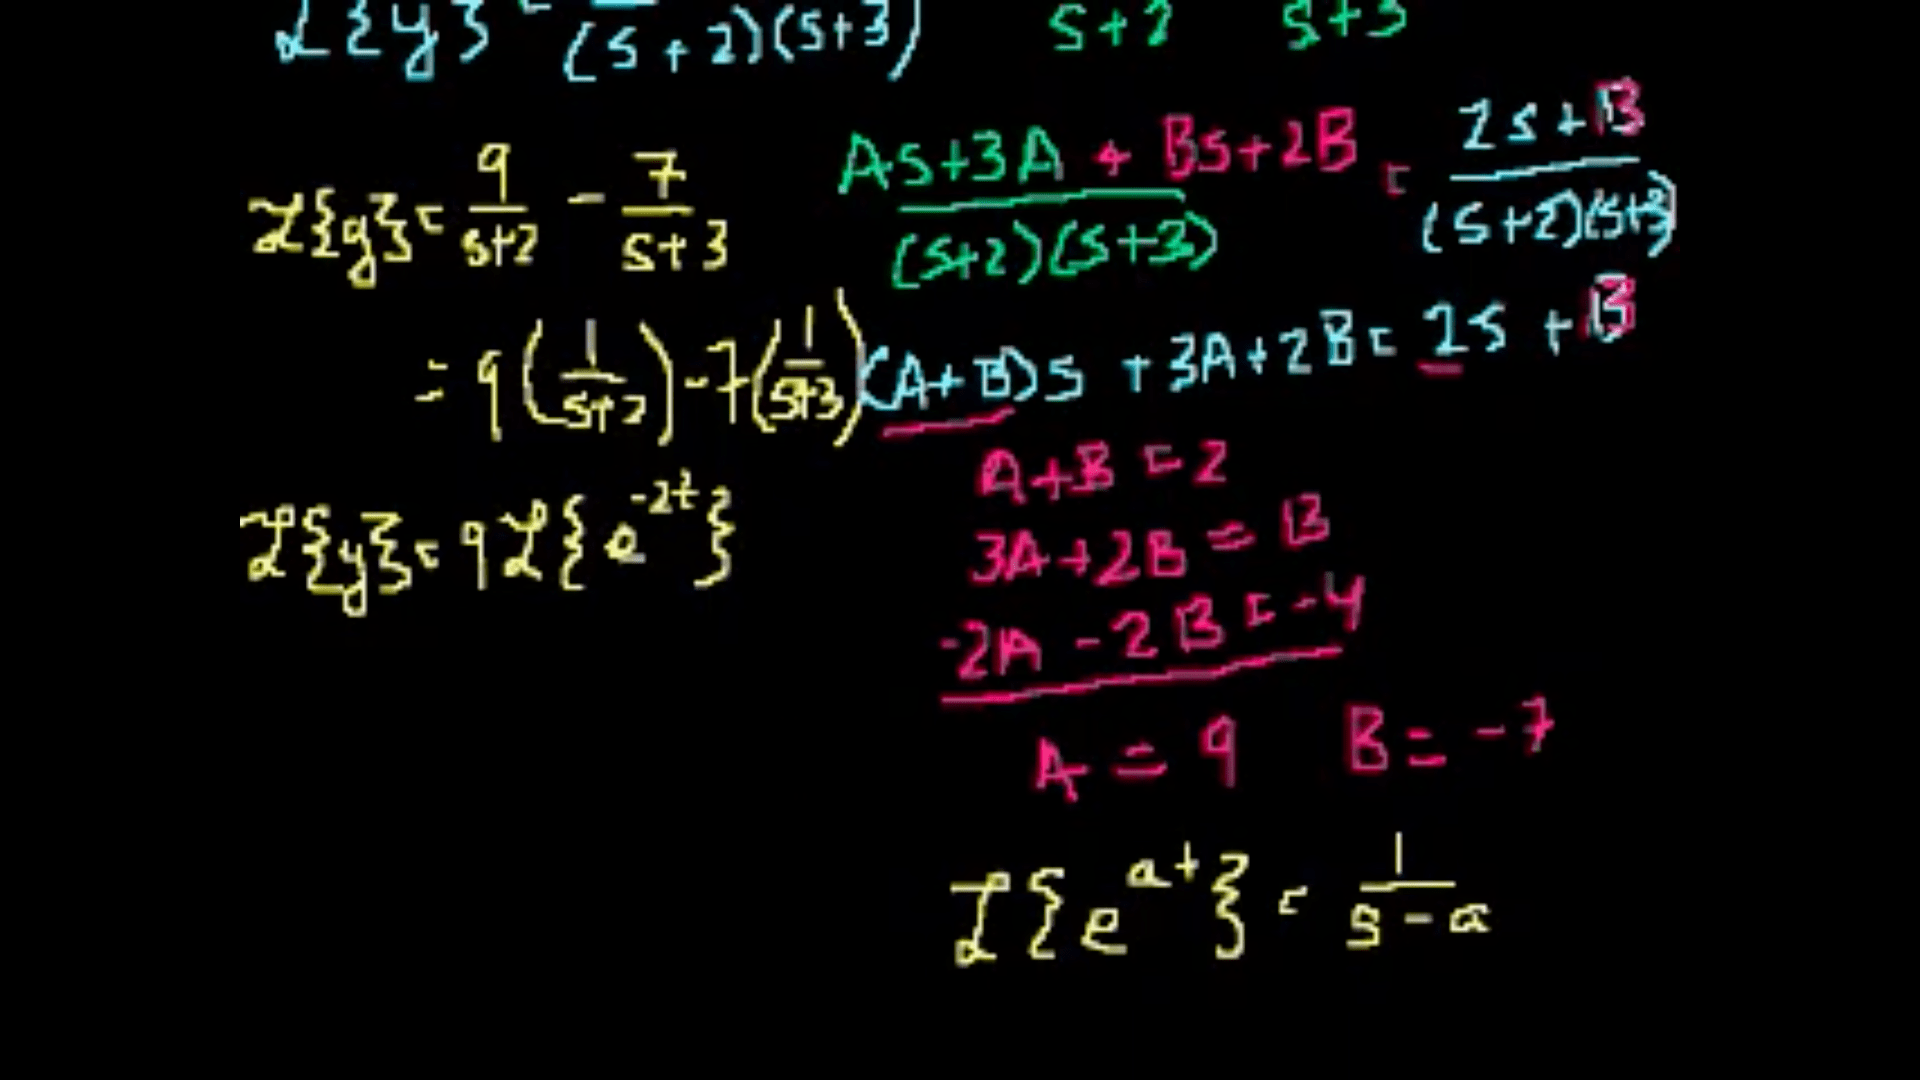 L{y} = (s+2)(s+3) s+2 s+3
As+3A + Bs+2B / (s+2)(s+3) = 2s+13 / (s+2)(s+3)
L{y} = 9/(s+2) - 7/(s+3)
= 9(1/(s+2)) - 7(1/(s+3))
(A+B)s + 3A+2B = 2s + 13
A+B = 2
L{y} = 9L{e^-2t}
3A+2B = 13
-2A - 2B = -4
A = 9 B = -7
L{e^at} = 1/(s-a)